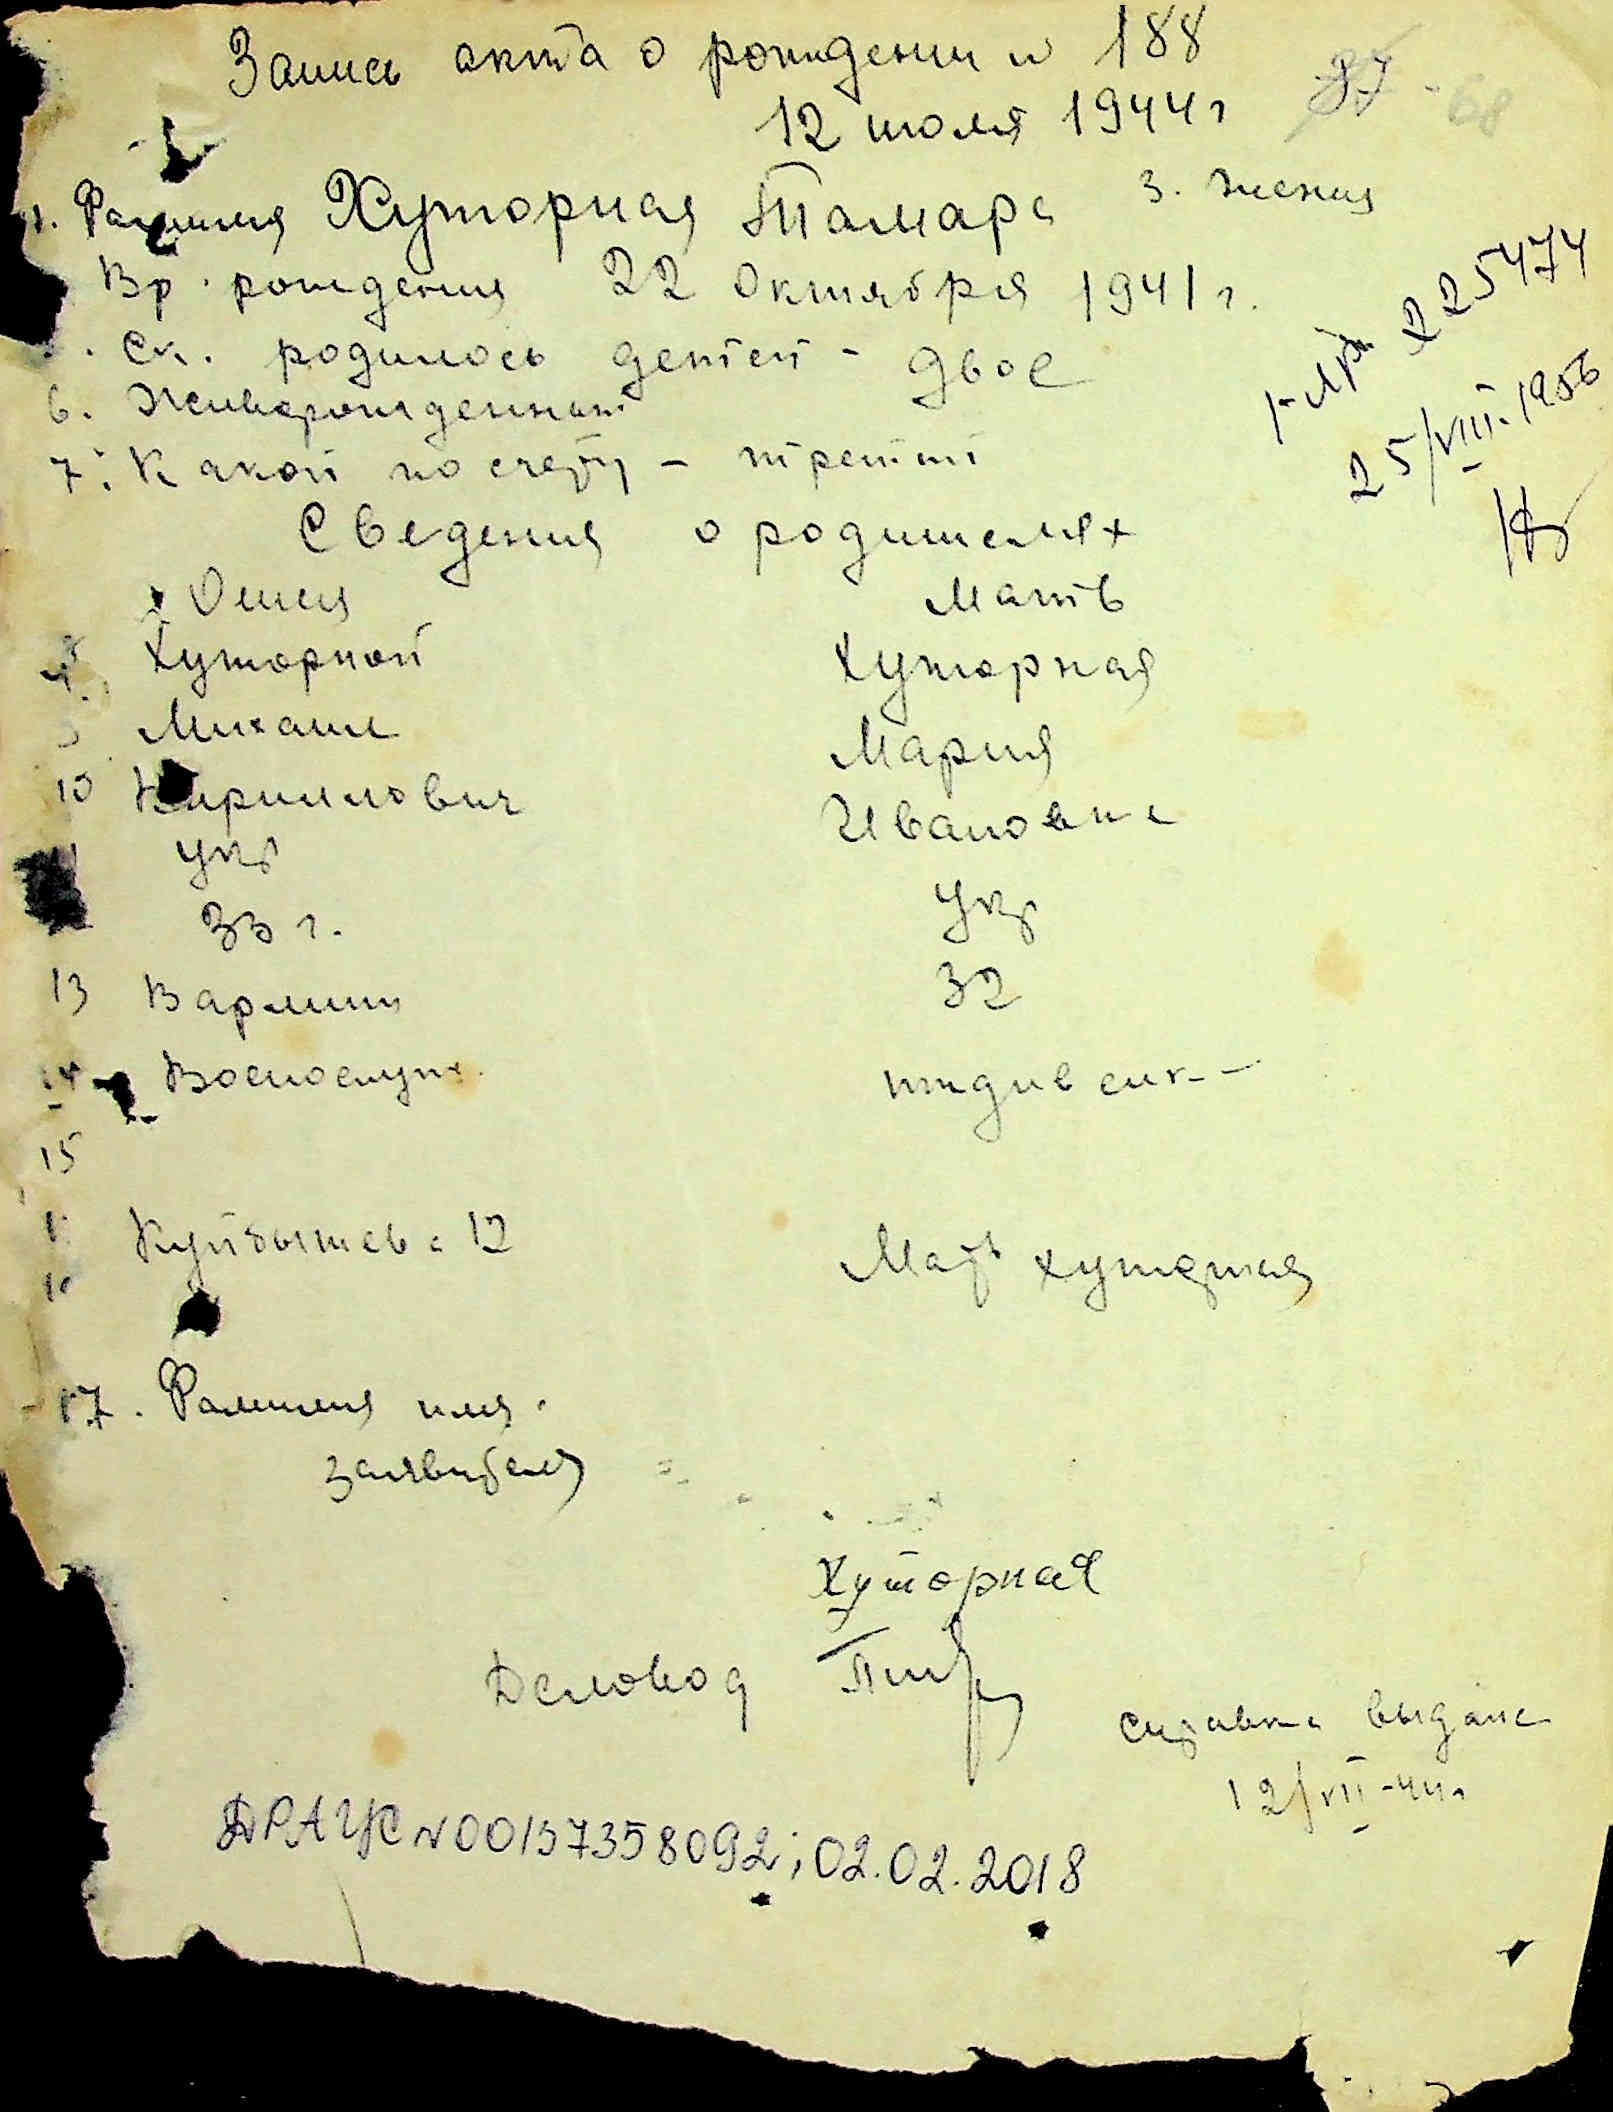 Запись акта о рождении № 188
37 - 68
12 июля 1944 г
1. Фамилия Хуторная Тамара 3. Женск
Вр. рождения 22 Октября 1941 г.
225474
25/VIII-1956
. Ск. родилось детей - двое
6. Живорожденный
7. Какой по счету - третий
Сведения о родителях
Отец Мать
Хуторной Хуторная
Михаил Мария
10 Кириллович Ивановна
укр укр
33 г. 32
13 В армии
14 Военнослуж. иждивенк-
15
Куйбышева 12 Мать Хуторная
17. Фамилия имя.
заявителя
Хуторная
Деловод
справка выдана
12/VII-44 г
ДРАЦС N00137358092; 02.02.2018